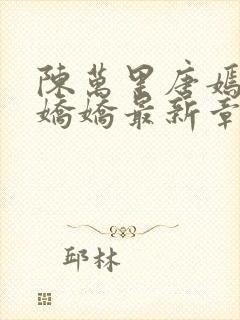 陳萬里唐嫣
嬌嬌最新章
邱林